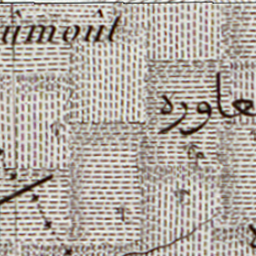 ûmoût
عاوره